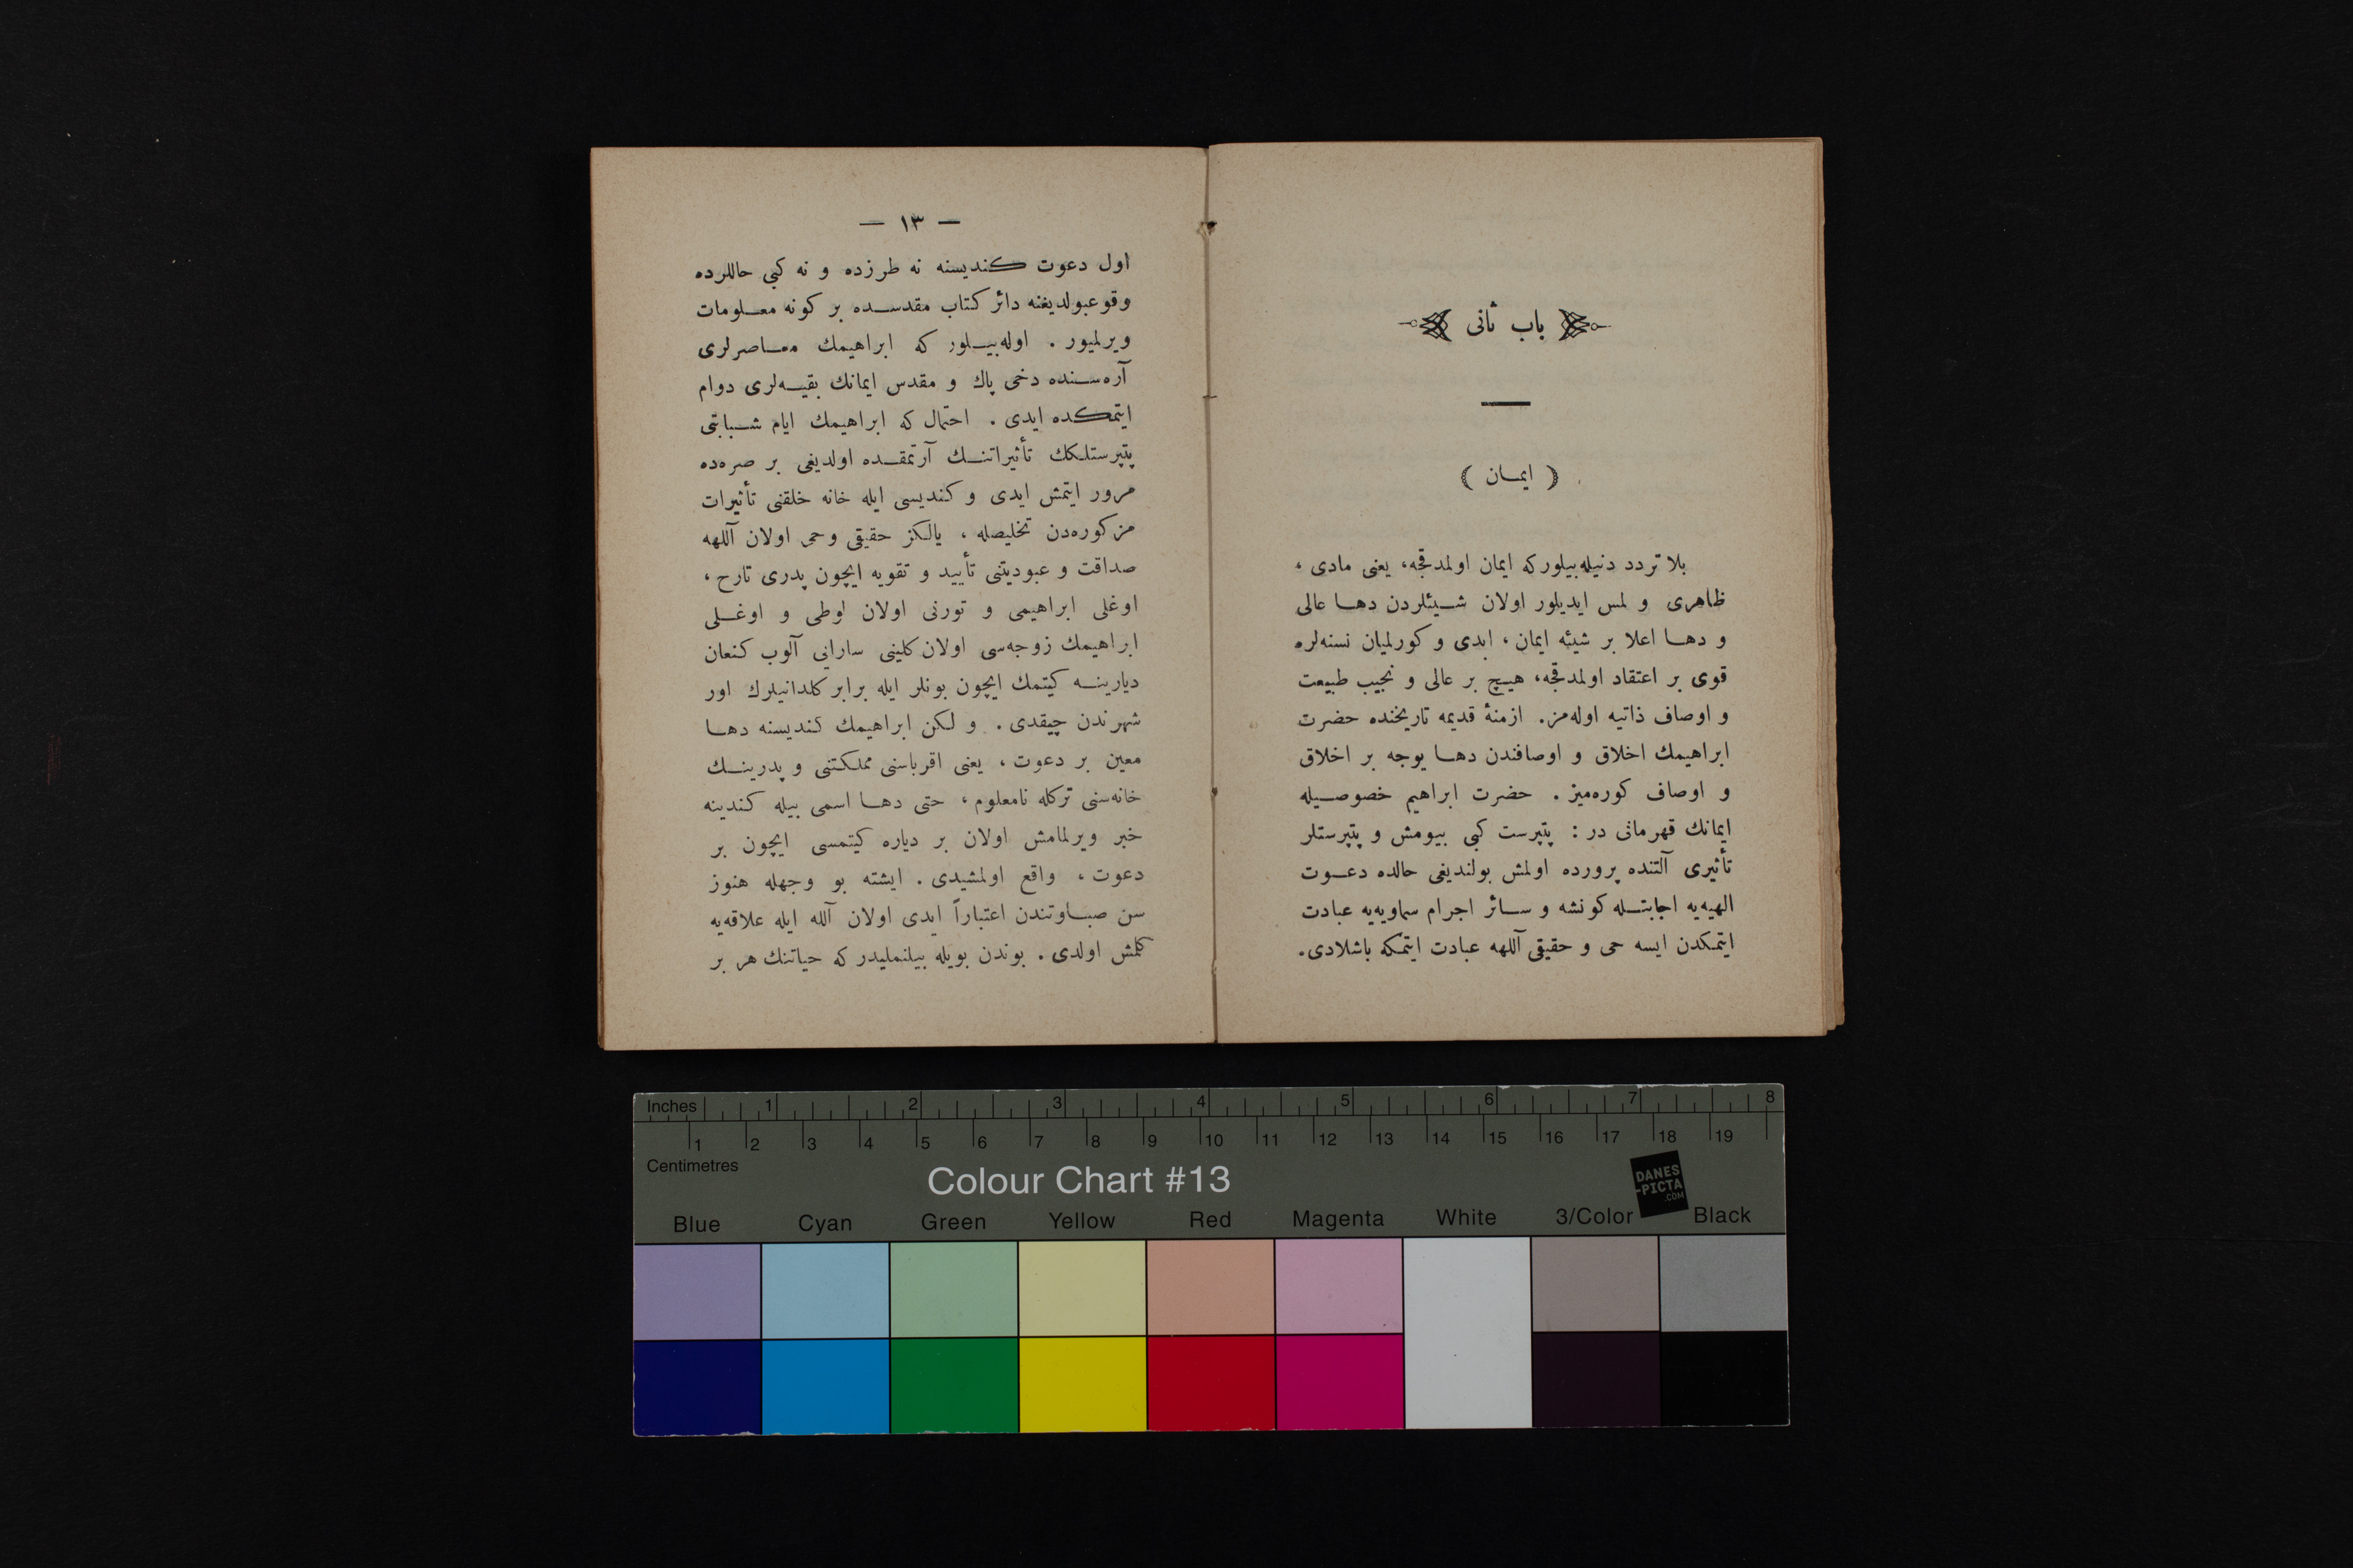 باب ثانی
( ایمــان )
بلا تردد دنیله‌بیلورکه ایمان اولمدقجه، یعنی مادی ،
ظاهری و لمس ایدیلور اولان شــیئلردن دهــا عالی
و دهــا اعلا بر شیئه ایمان ، ابدی و کورلمیان نسنه‌لره
قوی بر اعتقاد اولمدقجه، هیــچ بر عالی و نجیب طبیعت
و اوصاف ذاتیه اوله‌مز. ازمنهٔ قدیمه تاریخنده حضرت
ابراهیمك اخلاق و اوصافندن دهــا یوجه بر اخلاق
و اوصاف کوره‌میز . حضرت ابراهیم خصوصــیله
ایمانك قهرمانی در : پتپرست کبی بیومش و پتپرستلر
تأثیری آلتنده پرورده اولمش بولندیغی حالده دعــوت
الهیه‌یه اجابتــله کونشه و ســائر اجرام سماویه‌یه عبادت
ایتمکدن ایسه حی و حقیقی آللهه عبادت ایتمکه باشلادی.
— ١٣ —
اول دعوت کندیسنه نه طرزده و نه کبی حاللرده
وقوعبولدیغنه دائر کتاب مقدســده بر کونه معــلومات
ویرلمیور . اوله‌بیــلور که ابراهیمك معــاصرلری
آره‌ســنده دخی پاك و مقدس ایمانك بقیــه‌لری دوام
ایتمکده ایدی . احتمال که ابراهیمك ایام شــبابتی
پتپرستلکك تأثیراتنــك آرتمقــده اولدیغی بر صره‌ده
مرور ایتمش ایدی و کندیسی ایله خانه خلقنی تأثیرات
مزکوره‌دن تخلیصله ، یالکز حقیقی وحی اولان آللهه
صداقت و عبودیتنی تأیید و تقویه ایچون پدری تارح ،
اوغلی ابراهیمی و تورنی اولان لوطی و اوغــلی
ابراهیمك زوجه‌سی اولان کلینی سارایی آلوب کنعان
دیارینــه کیتمك ایچون بونلر ایله برابر کلدانیلرك اور
شهرندن چیقدی . و لکن ابراهیمك کندیسنه دهــا
معین بر دعوت ، یعنی اقرباسنی مملکتنی و پدرینــك
خانه‌سنی ترکله نامعلوم ، حتی دهــا اسمی بیله کندینه
خبر ویرلمامش اولان بر دیاره کیتمسی ایچون بر
دعوت ، واقع اولمشیدی . ایشته بو وجهله هنوز
سن صبــاوتندن اعتباراً ابدی اولان آلله ایله علاقه‌یه
کلمش اولدی . بوندن بویله بیلنملیدر که حیاتنك هر بر
Inches 1 2 3 4 5 6 7 8
1 2 3 4 5 6 7 8 9 10 11 12 13 14 15 16 17 18 19
Centimetres
Colour Chart #13
DANES
-PICTA
.COM
Blue Cyan Green Yellow Red Magenta White 3/Color Black